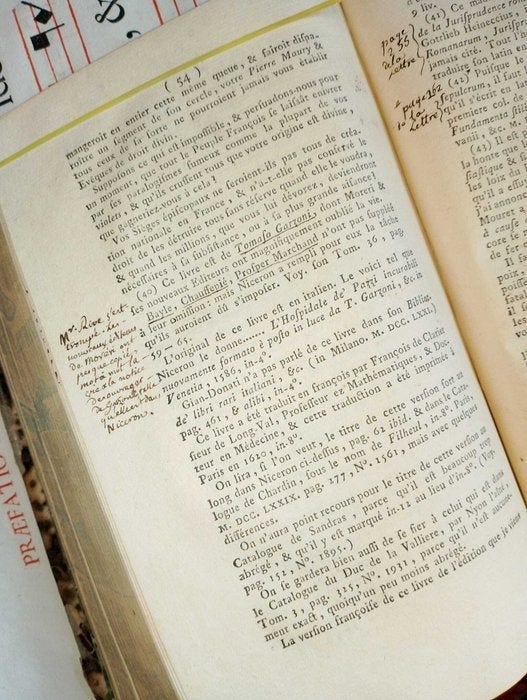 ( 54 )
mangeroit en entier cette même queue, & feroit dispa-
roître un segment de son cercle, votre Pierre Maury &
tous ceux de sa sorte ne pourroient jamais vous établir
Evêques de droit divin.
Supposons ce qui est impossible, & persuadons-nous pour
un moment, que tout le Peuple François se laissât ouvrir
par ses paralogismes fumeux comme la plupart de vos
violets, & qu'ils crussent tous que votre origine est divine,
que gagneriez-vous à cela ?
Vos Siéges épiscopaux ne seroient-ils pas tous de créa-
tion nationale en France, & n'a-t-elle pas conservé le
droit de les détruire tous sans réserve quand elle le voudra,
& quand les millions, que vous lui dévorez, deviendront
nécessaires à sa subsistance, ou à sa plus grande aisance ?
(40) Ce livre est de Tomaso Garzoni, dont Moreri &
ses nouveaux Editeurs ont magnifiquement oublié la vie.
Bayle, Chauffepié, Prosper Marchand n'ont pas suppléé
à leur omission: mais Niceron a rempli pour eux la tâche
qu'ils auroient dû s'imposer. Voy. son Tom. 36, pag.
59 — 65.
L'original de ce livre est en italien. Le voici tel que
Niceron le donne...... L'Hospidale de' Pazzi incurabili
nuovamente formato è posto in luce da T. Garzoni, &c. in
Venetia, 1586, in-4°.
Gian-Donati n'a pas parlé de ce livre dans son Bibliog.
de' libri rari italiani, &c. ( in Milano. M. DCC. LXXI.)
pag. 461, & alibi, in-4°.
Ce livre a été traduit en françois par François de Clarier
sieur de Long-Val, Professeur ez Mathématiques, & Doc-
teur en Médecine, & cette traduction a été imprimée à
Paris en 1620, in-8°.
On lira, si l'on veut, le titre de cette version fort au
long dans Niceron ci-dessus, pag. 62 ibid. & dans le Cata-
logue de Chardin, sous le nom de Filheul, in-8°. Paris,
M. DCC. LXXIX. pag. 277, N°. 1561, mais avec quelques
différences.
On n'aura point recours pour le titre de cette version au
Catalogue de Sandras, parce qu'il est beaucoup trop
abrégé, & qu'il y est marqué in-12 au lieu d'in-8°. (Voy.
pag. 152, N°. 1895.)
On se gardera bien aussi de se fier à celui qui est dans
le Catalogue du Duc de la Valliere, par Nyon l'aîné,
Tom. 3, pag. 325, N°. 1931, parce qu'il n'est aucune-
ment exact, quoiqu'un peu moins abrégé.
La version françoise de ce livre de l'édition que je viens
Mr. Rive s'est
trompé. les
nouveaux éditeurs
de Moréri ont
Niceron.
PRÆFATIO
page
255
de la
Lettre
page 262
Lettre
9 liv.
(41) Ce
de la Jurisprudence
Gottlieb Heineccius,
Romanarum,
jamais été.
traduire son latin
(42) Puisque
sepulcrum, il faut
qu'il s'écrit en
premiere col. de
Fundamenta
vanii, &c.
(43) Il est
la honte que